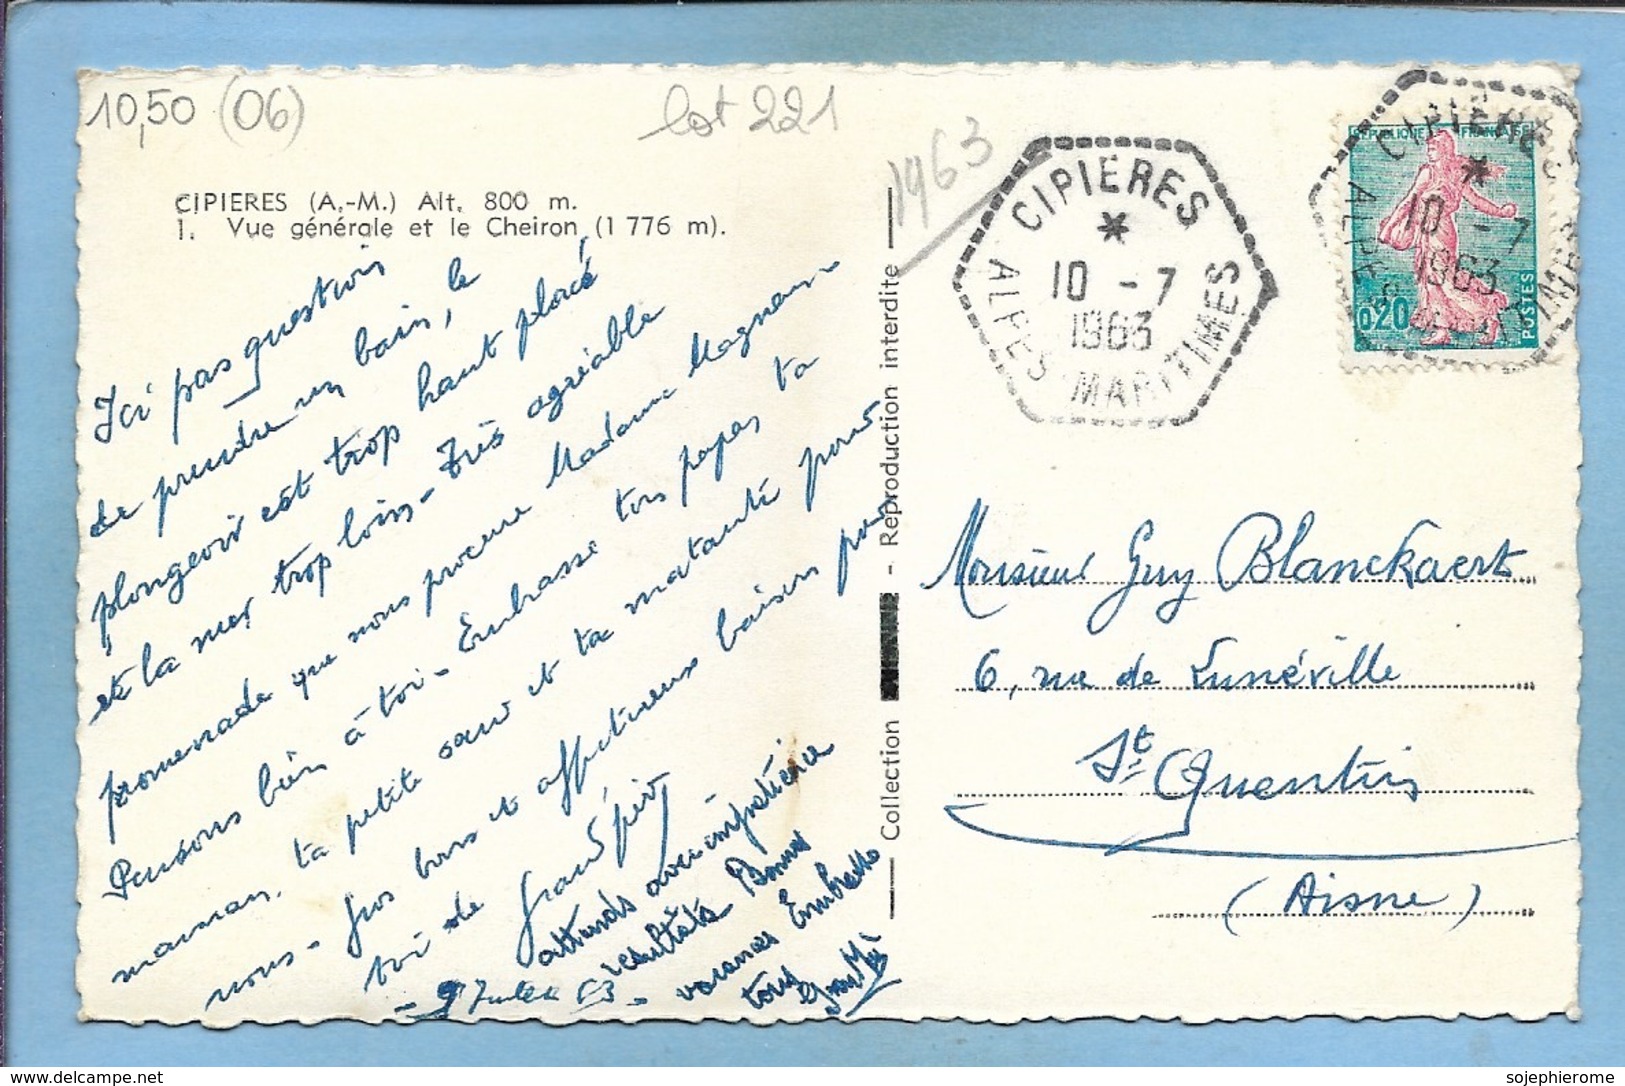 10,50 (06)
lot 221
1963
CIPIERES (A.-M.) Alt. 800 m.
1. Vue générale et le Cheiron (1 776 m).
Ici pas question
de prendre un bain, le
plongeoir est trop haut placé
et la mer trop loin - Très agréable
promenade que nous procure Madame Magnan
Pensons bien à toi - Embrasse ton papa, ta
maman, ta petite sœur et ta matante pour
nous - Gros bons et affectueux baisers pour
toi de Grand père
- 9 Juillet 63 -
attends avec impatience
résultats Bonnes
vacances Embrasse
tous
Collection - Reproduction interdite
CIPIERES
10 - 7
1963
ALPES MARITIMES
REPUBLIQUE FRANÇAISE
0,20
POSTES
CIPIERES
10 - 7
1963
ALPES MARITIMES
Monsieur Guy Blanckaert
6, rue de Lunéville
St Quentin
(Aisne)
https://www.delcampe.net
sojephierome